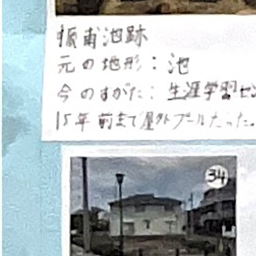 振甫池跡
元の地形：池
今のすがた：生涯学習セン
15年前まで屋外プールだった。
34